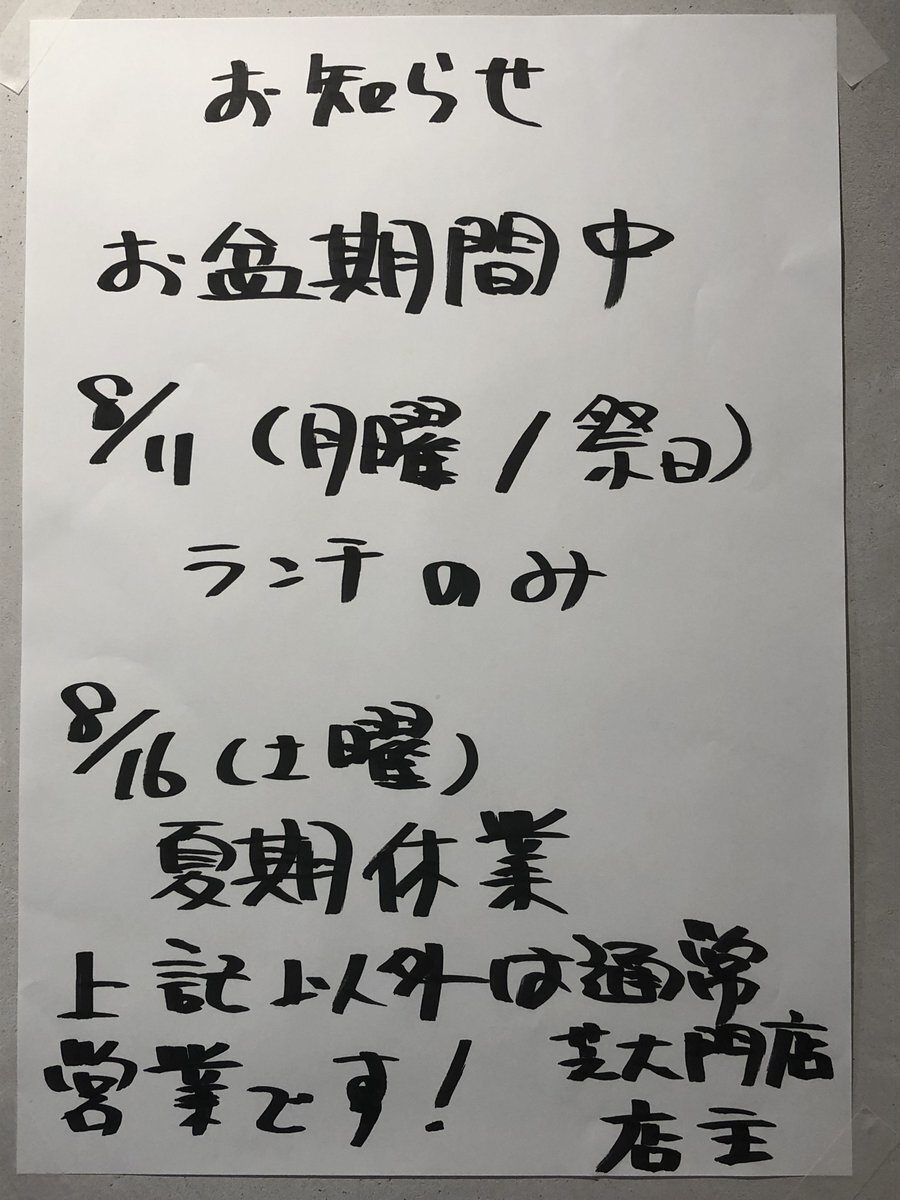 お知らせ
お盆期間中
8/11(月曜/祭日)
ランチのみ
8/16(土曜)
夏期休業
上記以外は通常
営業です!
芝大門店
店主